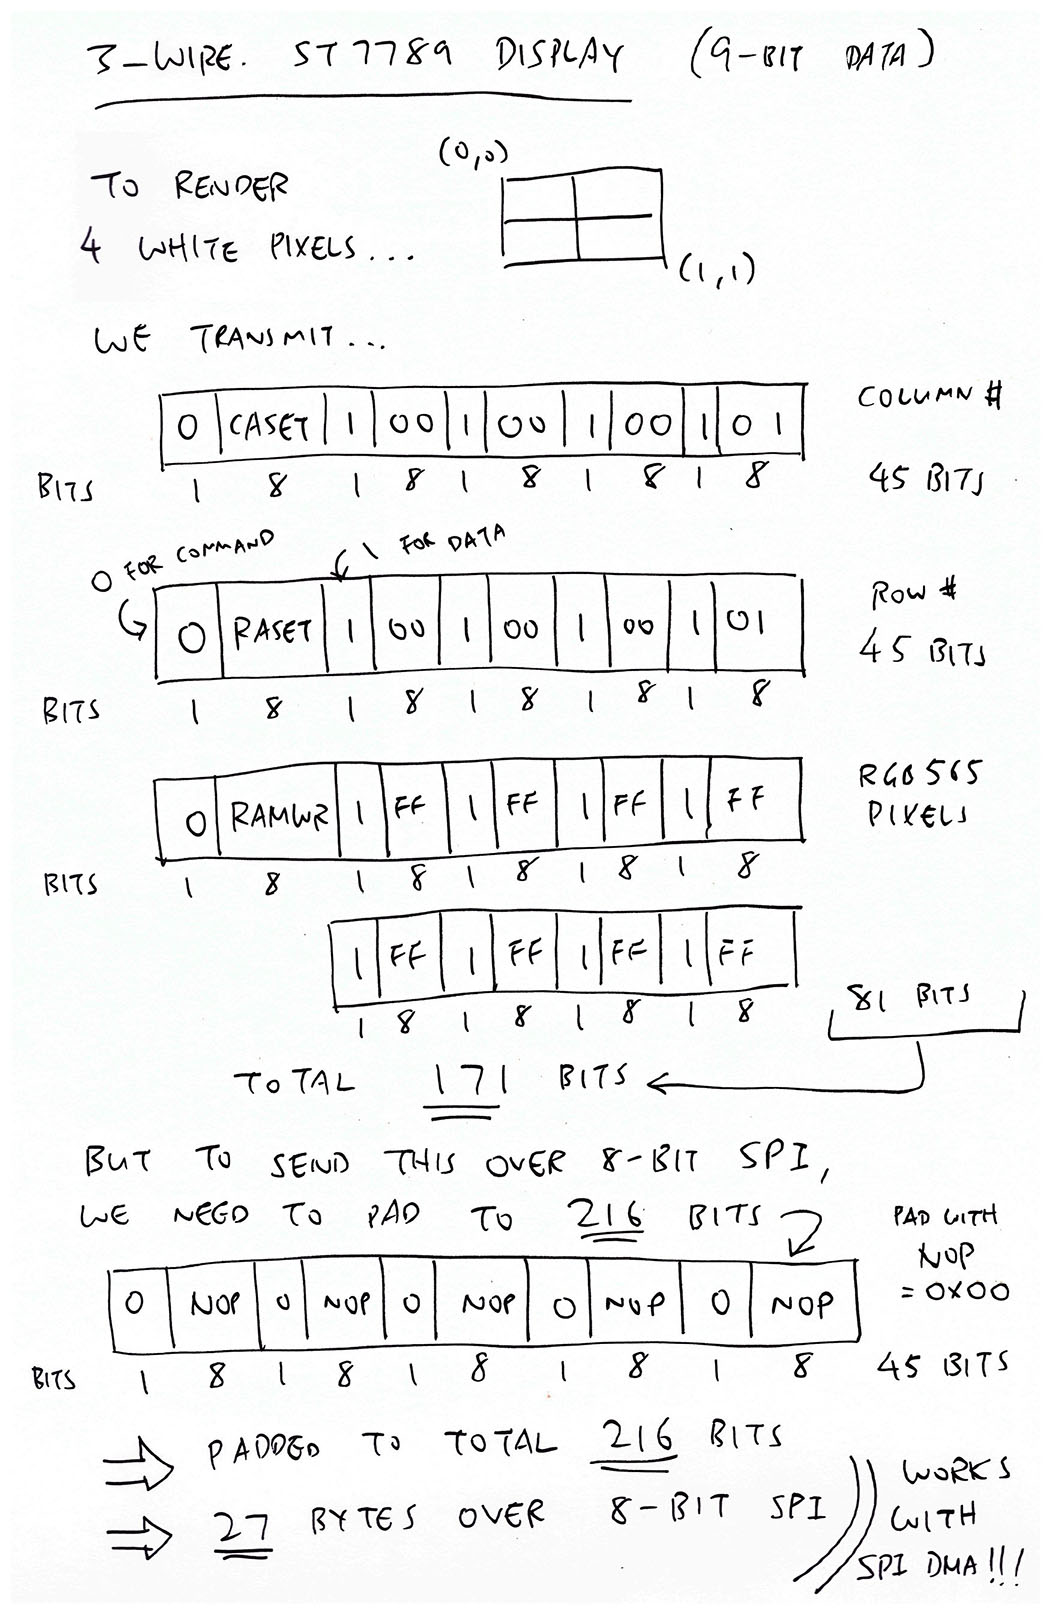 3-WIRE. ST7789 DISPLAY (9-BIT DATA)
TO RENDER
4 WHITE PIXELS...
(0,0)
(1,1)
WE TRANSMIT...
0 CASET 1 00 1 00 1 00 1 01
COLUMN #
BITS 1 8 1 8 1 8 1 8 1 8
45 BITS
0 FOR COMMAND
1 FOR DATA
0 RASET 1 00 1 00 1 00 1 01
ROW #
45 BITS
BITS 1 8 1 8 1 8 1 8 1 8
0 RAMWR 1 FF 1 FF 1 FF 1 FF
RGB565
PIXELS
BITS 1 8 1 8 1 8 1 8 1 8
1 FF 1 FF 1 FF 1 FF
1 8 1 8 1 8 1 8
81 BITS
TOTAL 171 BITS
BUT TO SEND THIS OVER 8-BIT SPI,
WE NEED TO PAD TO 216 BITS
PAD WITH
NOP
= 0X00
0 NOP 0 NOP 0 NOP 0 NOP 0 NOP
BITS 1 8 1 8 1 8 1 8 1 8
45 BITS
PADDED TO TOTAL 216 BITS
27 BYTES OVER 8-BIT SPI
WORKS
WITH
SPI DMA!!!